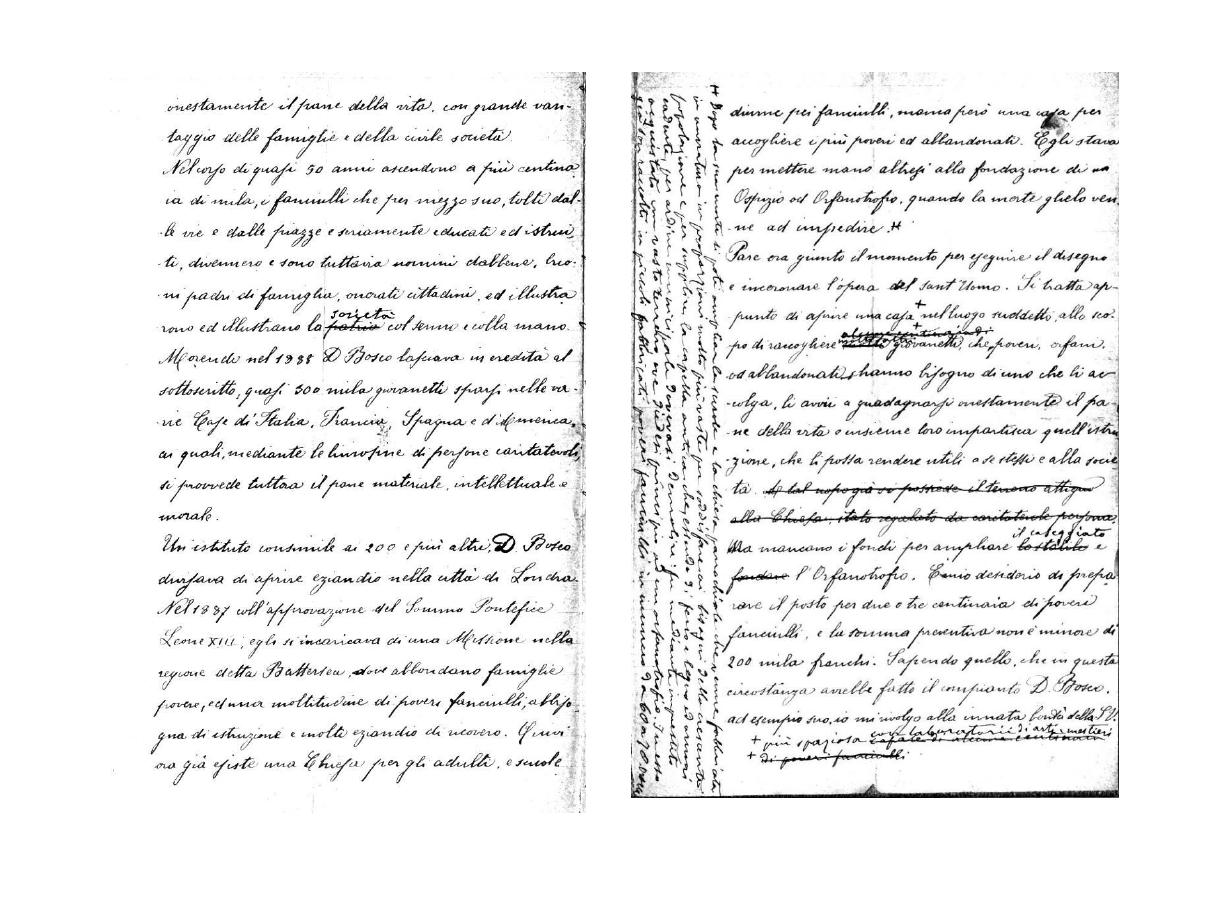 onestamente il pane della vita, con grande van-
taggio delle famiglie e della civile società.
Nel corso di quasi 50 anni ascendono a più centina
ia di mila, i fanciulli che per mezzo suo, tolti dal-
le vie e dalle piazze e seriamente educati ed istrui
ti, divennero e sono tuttavia uomini dabbene, buo-
ni padri di famiglia, onorati cittadini, ed illustra
società
rono ed illustrano la patria col senno e colla mano.
Morendo nel 1888 D Bosco lasciava in eredità al
sottoscritto, quasi 300 mila giovanetti sparsi nelle va-
rie Case d'Italia, Francia, Spagna e d'America,
ai quali, mediante le limosine di persone caritatevoli,
si provvede tuttora il pane materiale, intellettuale e
morale.
Un istituto consimile ai 200 e più altri, D. Bosco
divisava di aprire eziandio nella città di Londra
Nel 1887 coll'approvazione del Sommo Pontefice
Leone XIII, egli si incaricava di una Missione nella
regione detta Battersea, dove abbondano famiglie
povere, ed una moltitudine di poveri fanciulli, abbiso-
gna di istruzione e molti eziandio di ricovero. Quivi
ora già esiste una Chiesa per gli adulti, e scuole
diurne pei fanciulli, manca però una casa per
accogliere i più poveri ed abbandonati. Egli stava
per mettere mano altresì alla fondazione di un
Ospizio od Orfanotrofio, quando la morte glielo ven
ne ad impedire. #
Pare ora giunto il momento per eseguire il disegno
e incoronare l'opera del sant'Uomo. Si tratta ap-
punto di aprire una casa + nel luogo suddetto, allo sco-
alcune centinaia di
po di raccogliere giovanetti, che poveri, orfani
od abbandonati, hanno bisogno di uno che li ac
colga, li avvii a guadagnarsi onestamente il pa-
ne della vita e insieme loro impartisca quell'istru
zione, che li possa rendere utili a se stessi e alla socie
tà. A tal uopo già si possiede il terreno attiguo
alla Chiesa, stato regalato da caritatevole persona.
il caseggiato
Ma mancano i fondi per ampliare lo stabile e
fondare l'Orfanotrofio. È mio desiderio di prepa
rare il posto per due o tre centinaia di poveri
fanciulli, e la somma preventiva non è minore di
200 mila franchi. Sapendo quello, che in questa
circostanza avrebbe fatto il compianto D. Bosco,
ad esempio suo, io mi rivolgo alla innata bontà della S.V.
+ più spaziosa con laboratorii di arti e mestieri
capace di alcune centinaia
+ di poveri fanciulli
# Dopo la sua morte si poté ampliare le scuole e la chiesa parrocchiale che venne fabbricata
in muratura in proporzioni molto più vaste per soddisfare ai bisogni della crescente
popolazione e per supplire la cappella antica che, essendo di ferro e legno